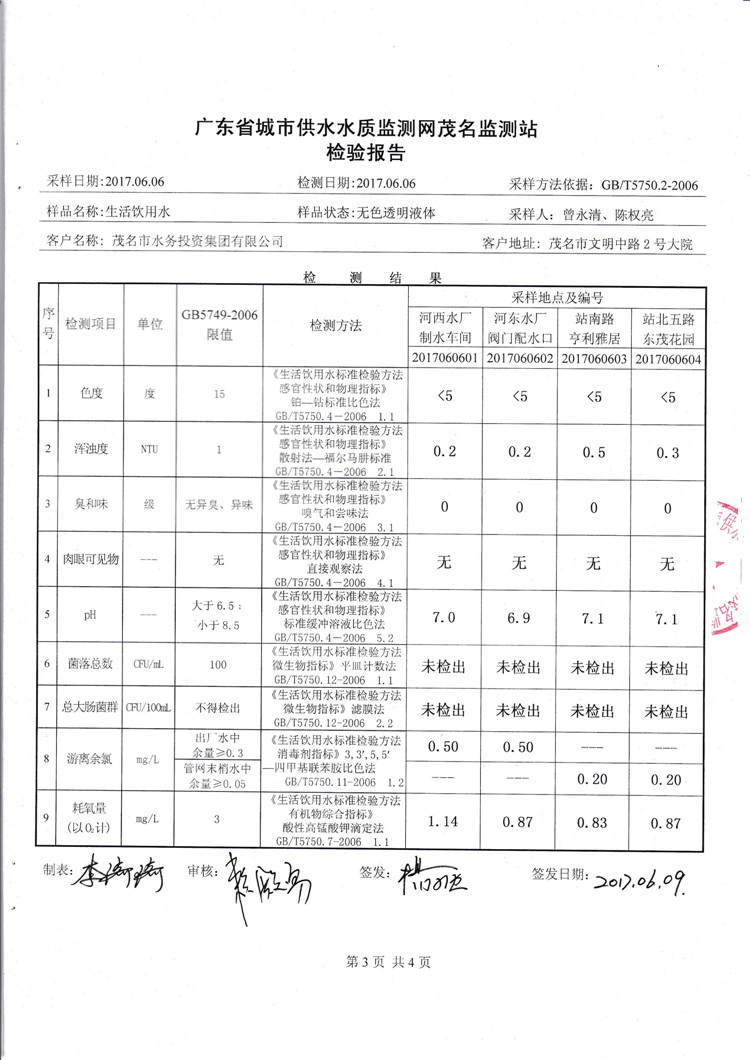 广东省城市供水水质监测网茂名监测站
检验报告
采样日期:2017.06.06 检测日期:2017.06.06 采样方法依据: GB/T5750.2-2006
样品名称:生活饮用水 样品状态:无色透明液体 采样人: 曾永清、陈权亮
客户名称: 茂名市水务投资集团有限公司 客户地址: 茂名市文明中路2号大院
检 测 结 果
序号 检测项目 单位 GB5749-2006 限值 检测方法 采样地点及编号
河西水厂 制水车间 河东水厂 阀门配水口 站南路 亨利雅居 站北五路 东茂花园
2017060601 2017060602 2017060603 2017060604
1 色度 度 15 《生活饮用水标准检验方法 感官性状和物理指标》 铂—钴标准比色法 GB/T5750.4-2006 1.1 <5 <5 <5 <5
2 浑浊度 NTU 1 《生活饮用水标准检验方法 感官性状和物理指标》 散射法—福尔马肼标准 GB/T5750.4-2006 2.1 0.2 0.2 0.5 0.3
3 臭和味 级 无异臭、异味 《生活饮用水标准检验方法 感官性状和物理指标》 嗅气和尝味法 GB/T5750.4-2006 3.1 0 0 0 0
4 肉眼可见物 --- 无 《生活饮用水标准检验方法 感官性状和物理指标》 直接观察法 GB/T5750.4-2006 4.1 无 无 无 无
5 pH --- 大于6.5; 小于8.5 《生活饮用水标准检验方法 感官性状和物理指标》 标准缓冲溶液比色法 GB/T5750.4-2006 5.2 7.0 6.9 7.1 7.1
6 菌落总数 CFU/mL 100 《生活饮用水标准检验方法 微生物指标》平皿计数法 GB/T5750.12-2006 1.1 未检出 未检出 未检出 未检出
7 总大肠菌群 CFU/100mL 不得检出 《生活饮用水标准检验方法 微生物指标》滤膜法 GB/T5750.12-2006 2.2 未检出 未检出 未检出 未检出
8 游离余氯 mg/L 出厂水中 余量≥0.3 《生活饮用水标准检验方法 消毒剂指标》3,3′,5,5′ —四甲基联苯胺比色法 GB/T5750.11-2006 1.2 0.50 0.50 --- ---
管网末梢水中 余量≥0.05 --- --- 0.20 0.20
9 耗氧量 (以O₂计) mg/L 3 《生活饮用水标准检验方法 有机物综合指标》 酸性高锰酸钾滴定法 GB/T5750.7-2006 1.1 1.14 0.87 0.83 0.87
制表: 审核: 签发: 签发日期: 2017.06.09.
第3页 共4页